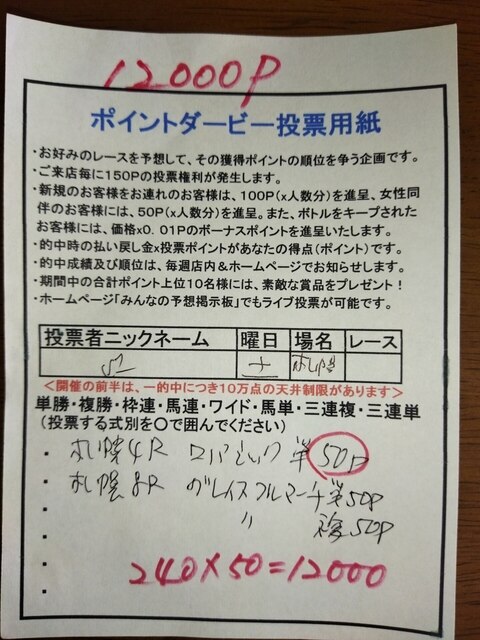 12000P
ポイントダービー投票用紙
・お好みのレースを予想して、その獲得ポイントの順位を争う企画です。
・ご来店毎に150Pの投票権利が発生します。
・新規のお客様をお連れのお客様は、100P(x人数分)を進呈、女性同
伴のお客様には、50P(x人数分)を進呈。また、ボトルをキープされた
お客様には、価格x0.01Pのボーナスポイントを進呈いたします。
・的中時の払い戻し金x投票ポイントがあなたの得点(ポイント)です。
・的中成績及び順位は、毎週店内&ホームページでお知らせします。
・期間中の合計ポイント上位10名様には、素敵な賞品をプレゼント!
・ホームページ「みんなの予想掲示板」でもライブ投票が可能です。
投票者ニックネーム 曜日 場名 レース
土 札幌
<開催の前半は、一的中につき10万点の天井制限があります>
単勝・複勝・枠連・馬連・ワイド・馬単・三連複・三連単
(投票する式別を〇で囲んでください)
・ 札幌4R 単 50P
・ 札幌8R グレイスフルマーチ 単50P
・ 〃 複50P
・
・ 240×50=12000
・